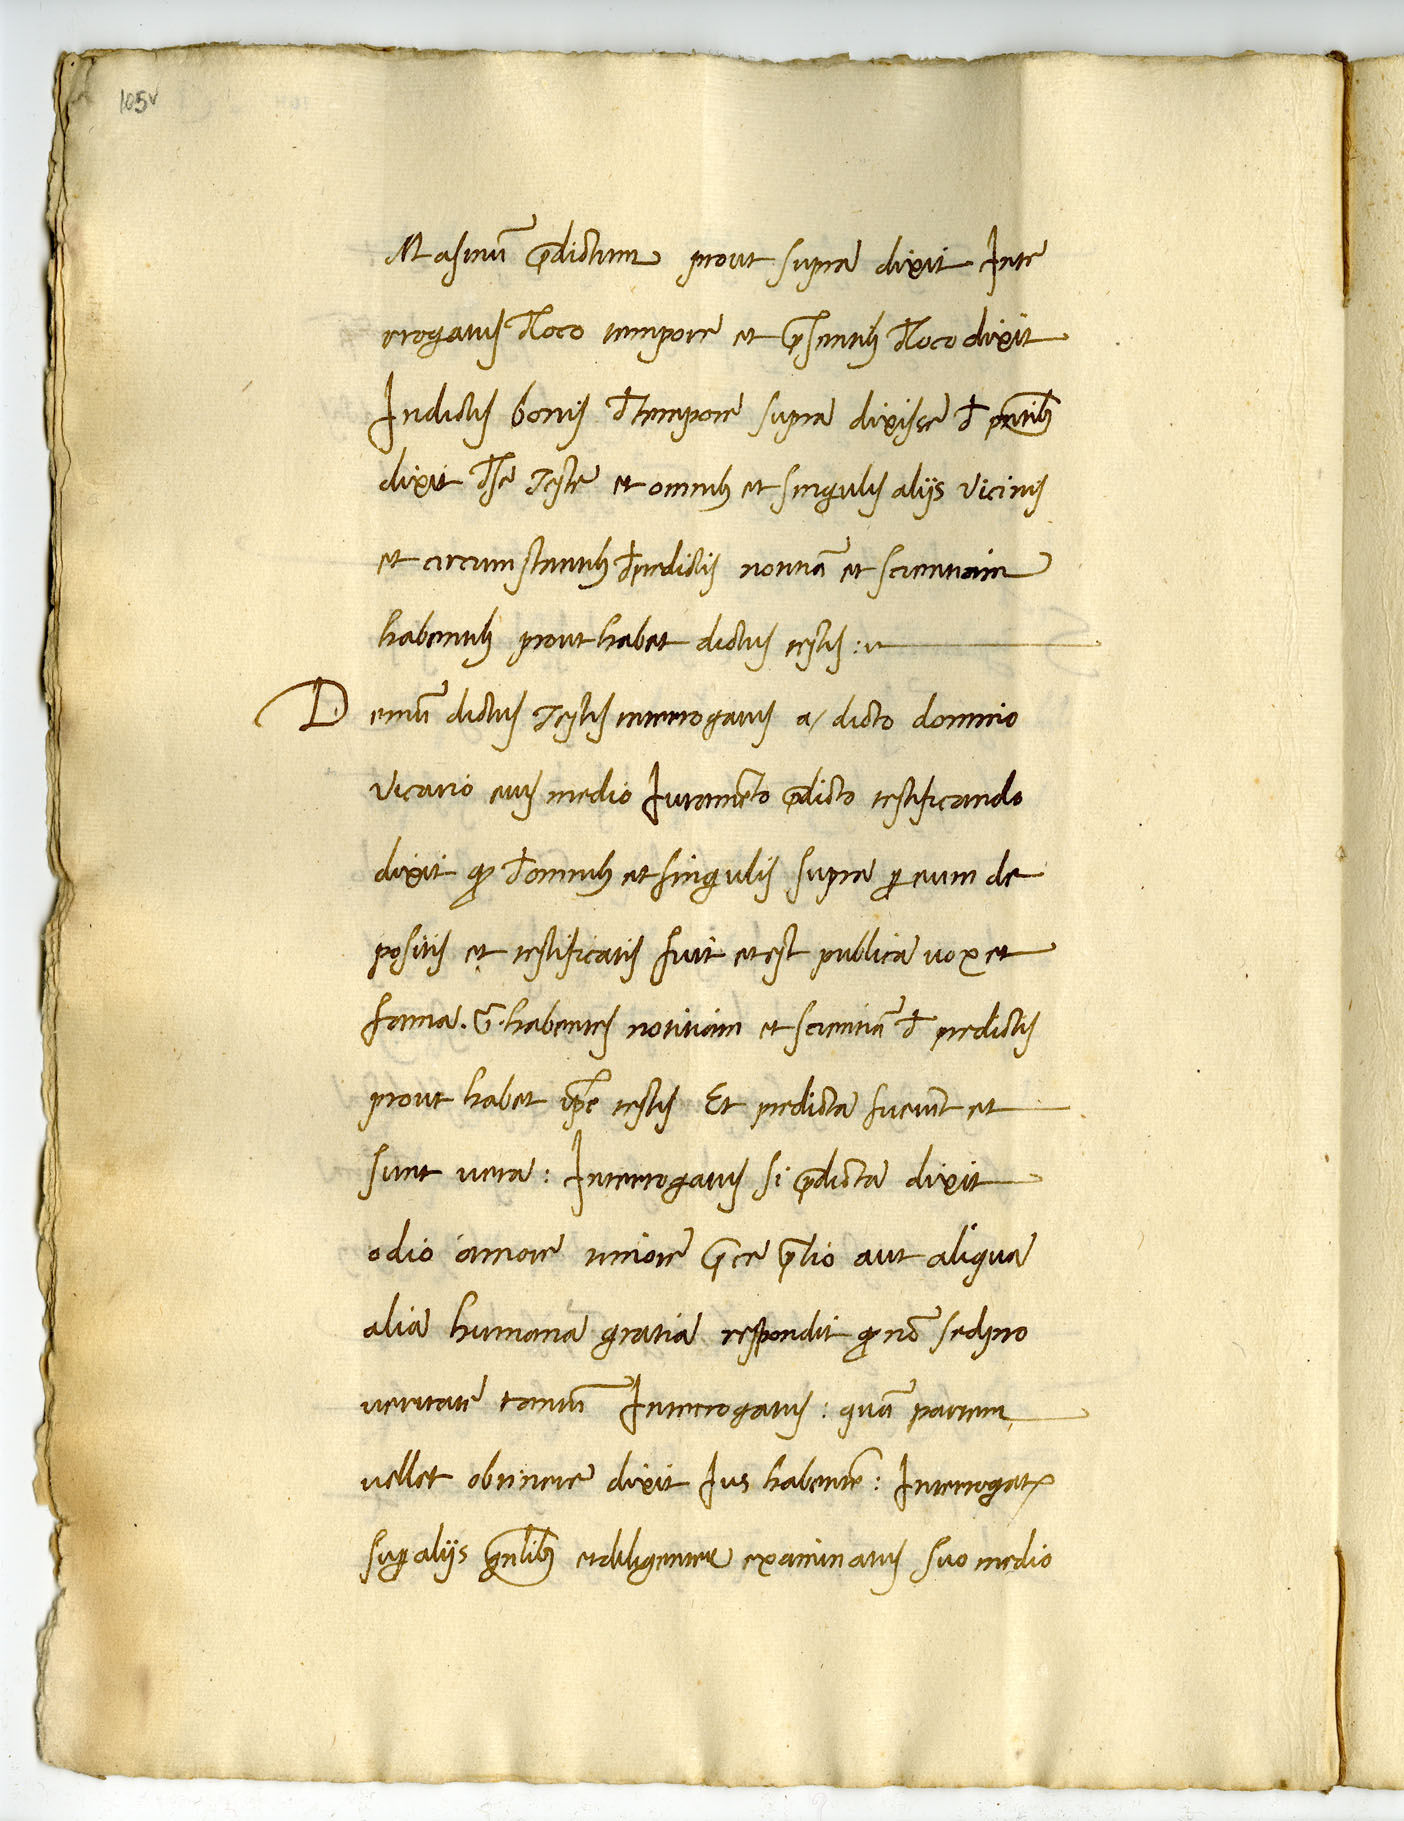 105v
Masinū p̄dictum prout supra dixit Inte
rrogatus d̄ loco tempore et p̄sentib3 d̄ loco dixit
In dictis bonis d̄ tempore supra dixisse d̄ pn̄tib3
dixit d̄ se Teste et omnib3 et singulis aliis vicinis
et circumstantib3 d̄ predictis notitiā et scientiam
habentib3 prout habet dictus testis :~
Demū dictus Testis interrogatus a/ dicto domino
vicario eius medio Iuramēto p̄dicto testificando
dixit ꝙ d̄ omnib3 et singulis supra ꝑ eum de
positis et testificatis fuit et est publica vox et
fama. Et habentes notitiam et scientiā d̄ predictis
prout habet ip̄e testis Et predicta fuerūt et
sunt vera : Interrogatus si p̄dicta dixit
odio amore timore p̄ce p̄tio aut aliqua
alia humana gratia respondit ꝙ nō sed pro
veritate tantū Interrogatus : quā partem
vellet obtinere dixit Ius habentē : Interrogatꝰ
suꝑ aliis gn̄alib3 et diligenter examinatus suo medio